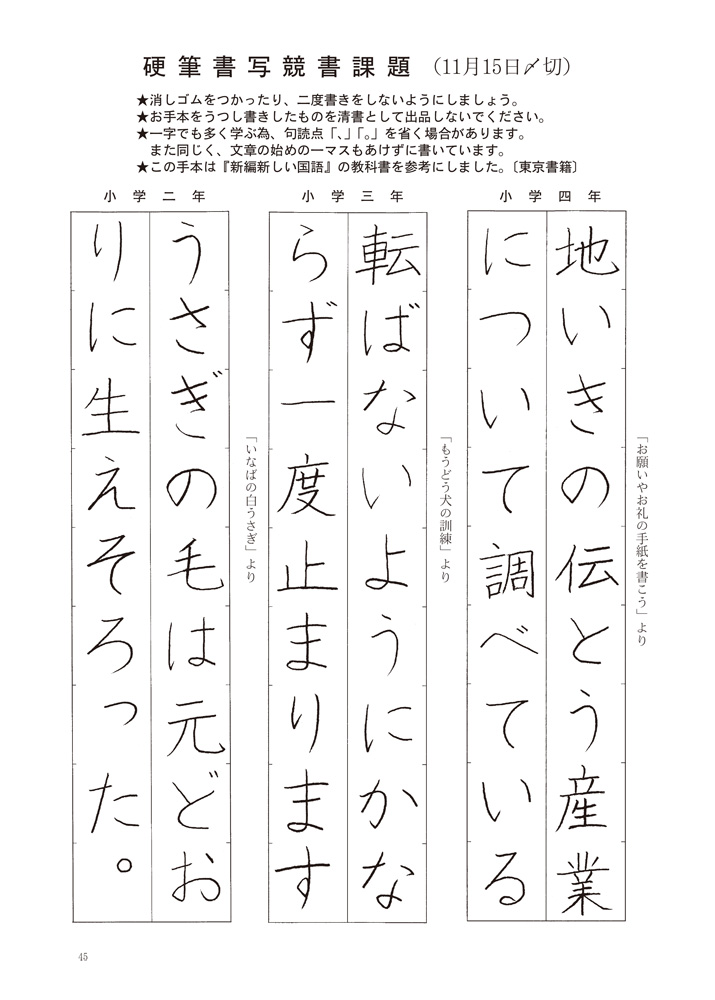 硬筆書写競書課題 (11月15日〆切)
★消しゴムをつかったり、二度書きをしないようにしましょう。
★お手本をうつし書きしたものを清書として出品しないでください。
★一字でも多く学ぶ為、句読点「、」「。」を省く場合があります。
また同じく、文章の始めの一マスもあけずに書いています。
★この手本は『新編新しい国語』の教科書を参考にしました。〔東京書籍〕
小学四年
地いきの伝とう産業
について調べている
「お願いやお礼の手紙を書こう」より
小学三年
転ばないようにかな
らず一度止まります
「もうどう犬の訓練」より
小学二年
うさぎの毛は元どお
りに生えそろった。
「いなばの白うさぎ」より
45